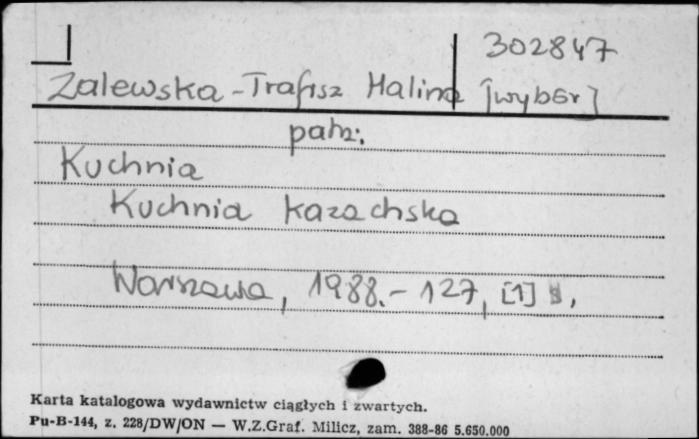 302847
Zalewska-Trafisz Halina [wybór]
patrz:
Kuchnia
Kuchnia kazachska
Warszawa, 1988.- 127, [1] s.
Karta katalogowa wydawnictw ciągłych i zwartych.
Pu-B-144, z. 228/DW/ON — W.Z.Graf. Milicz, zam. 388-86 5.650.000